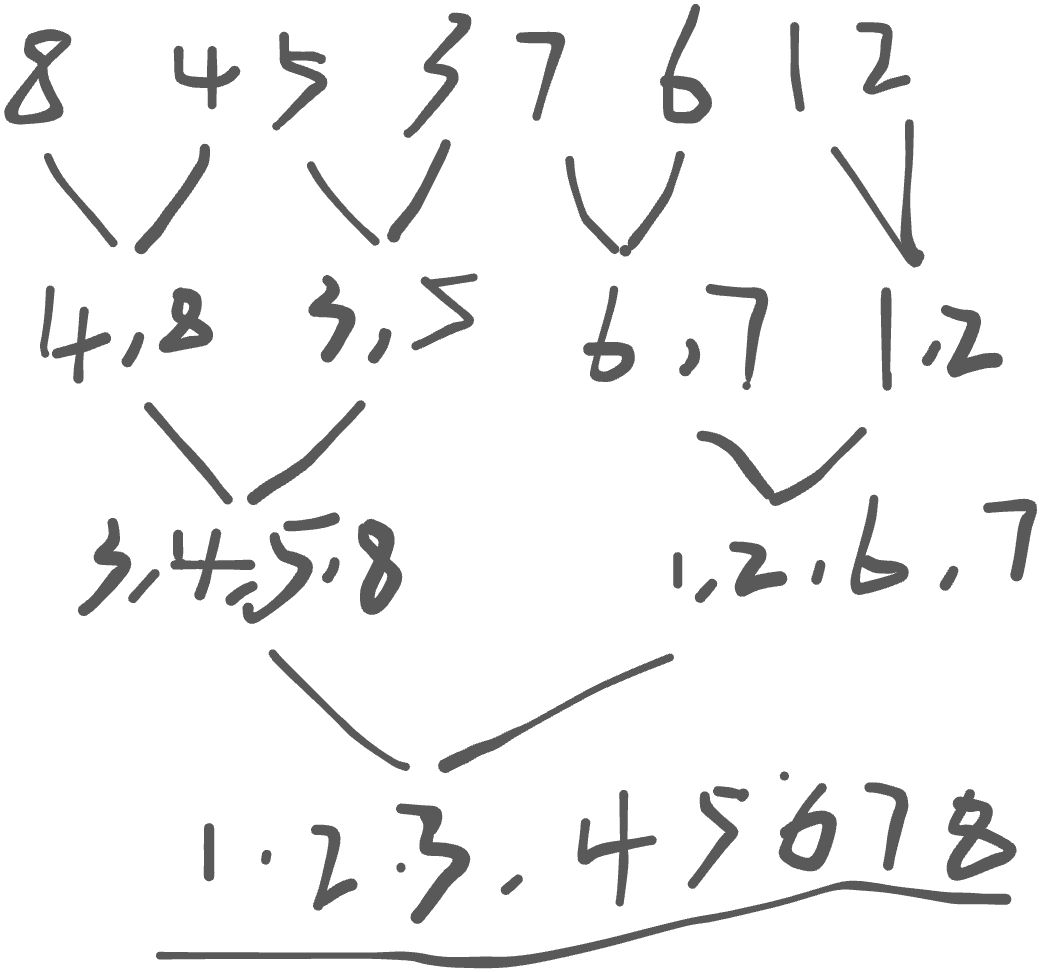 8 4 5 3 7 6 1 2
4,8 3,5 6,7 1,2
3,4,5,8 1,2,6,7
1.2.3,45678